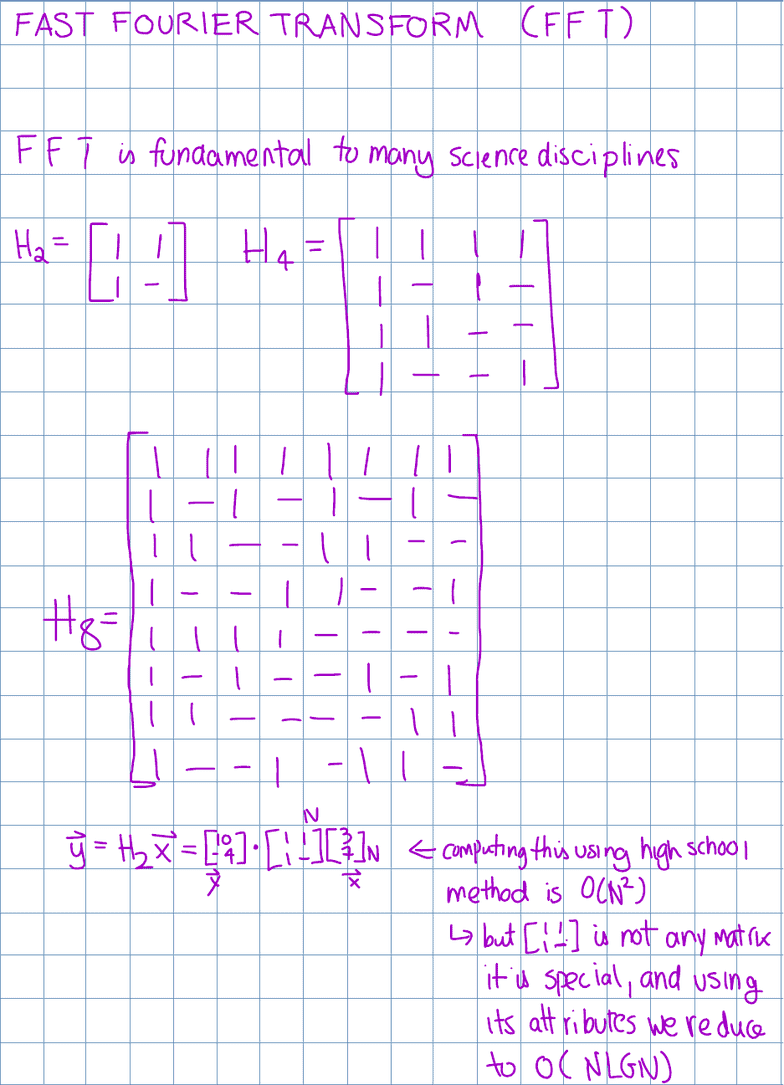 FAST FOURIER TRANSFORM (FFT)
FFT is fundamental to many science disciplines
H2 = [1 1
1 -]
H4 = [1 1 1 1
1 - 1 -
1 1 - -
1 - - 1]
H8 = [1 1 1 1 1 1 1 1
1 - 1 - 1 - 1 -
1 1 - - 1 1 - -
1 - - 1 1 - - 1
1 1 1 1 - - - -
1 - 1 - - 1 - 1
1 1 - - - - 1 1
1 - - 1 - 1 1 -]
N
y⃗ = H2 x⃗ = [10 -4] · [1 1 1 -] [3 7] N ← computing this using high school
y⃗ x⃗
method is O(N²)
↳ but [1 1 1 -] is not any matrix
it is special, and using
its attributes we reduce
to O(NLGN)